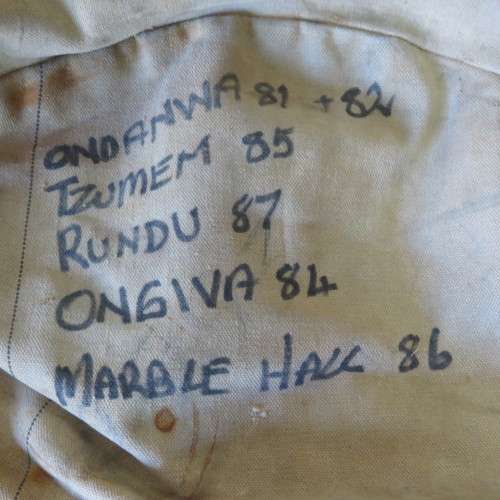 ONDANWA 81 + 82
TZUMEM 85
RUNDU 87
ONGIVA 84
MARBLE HALL 86